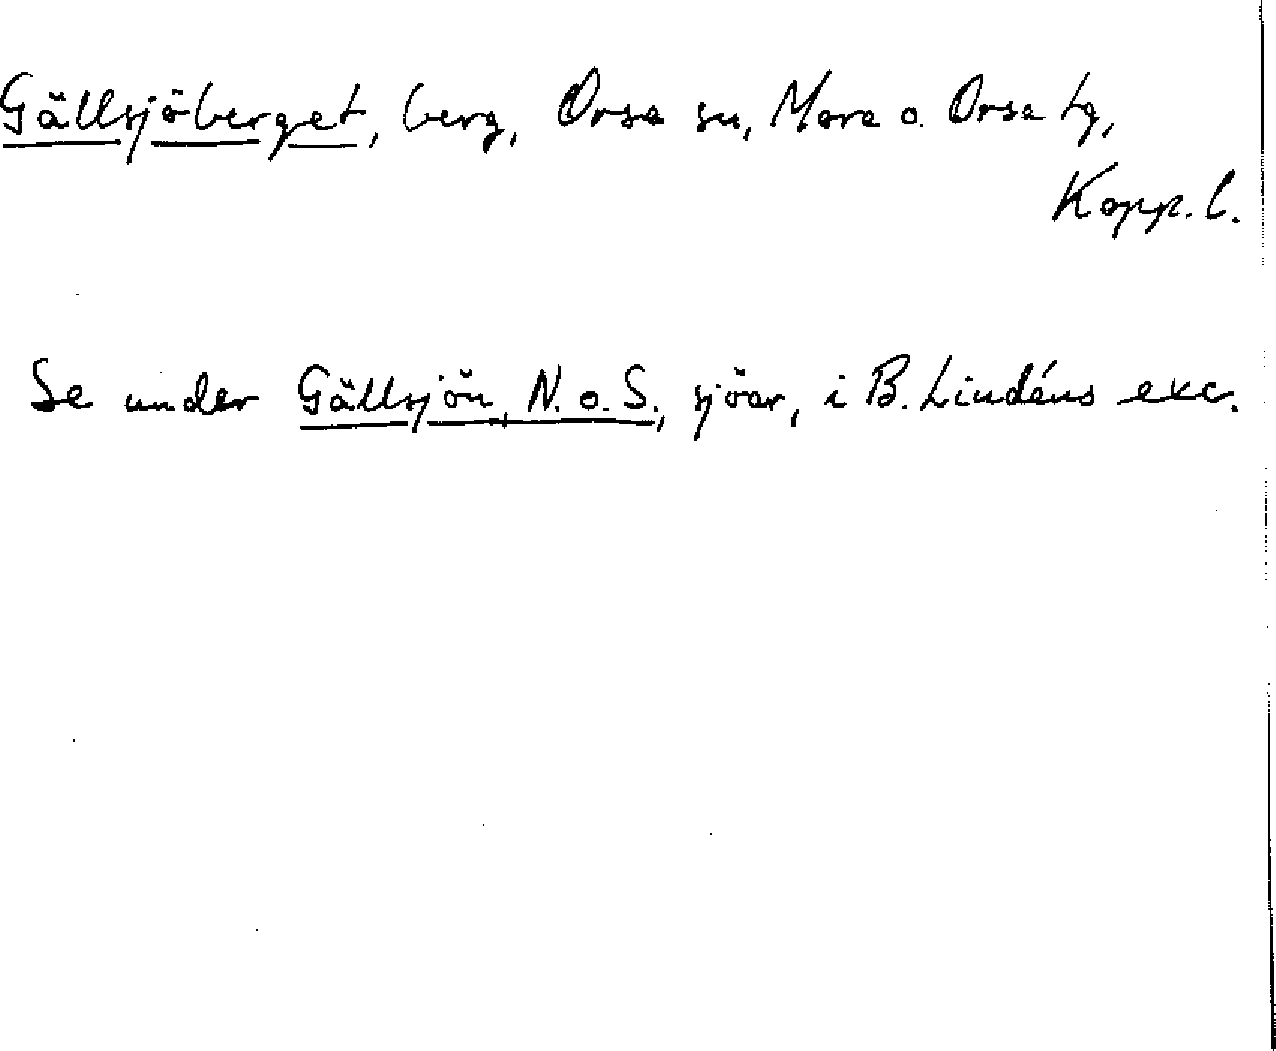 Gällsjöberget, berg, Orsa sn, Mora o. Orsa tg,
Kopp. l.
Se under Gällsjön, N. o. S., sjöar, i B. Lindéns exc.